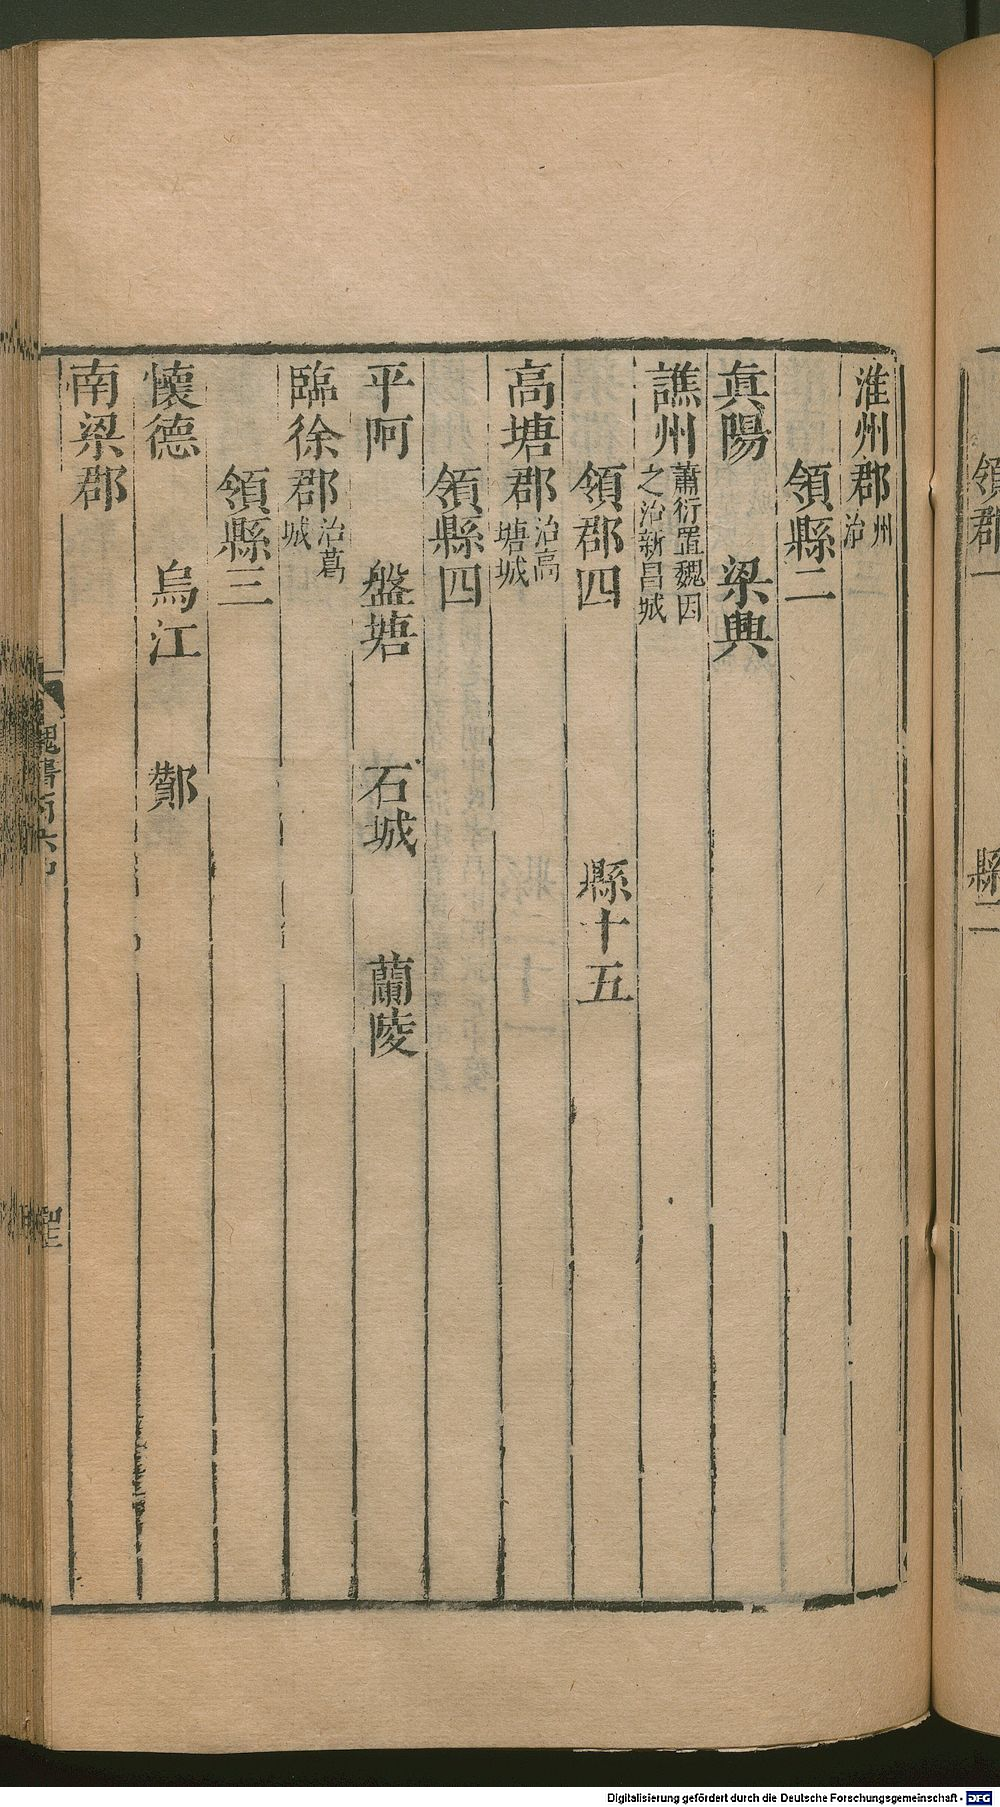 領郡一 縣二
淮州郡州治
領縣二
真陽 梁興
譙州蕭衍置魏因之治新昌城
領郡四 縣十五
高塘郡治高塘城
領縣四
平阿 盤塘 石城 蘭陵
臨徐郡治葛城
領縣三
懷德 烏江 酇
南梁郡
魏書
Digitalisierung gefördert durch die Deutsche Forschungsgemeinschaft - DFG